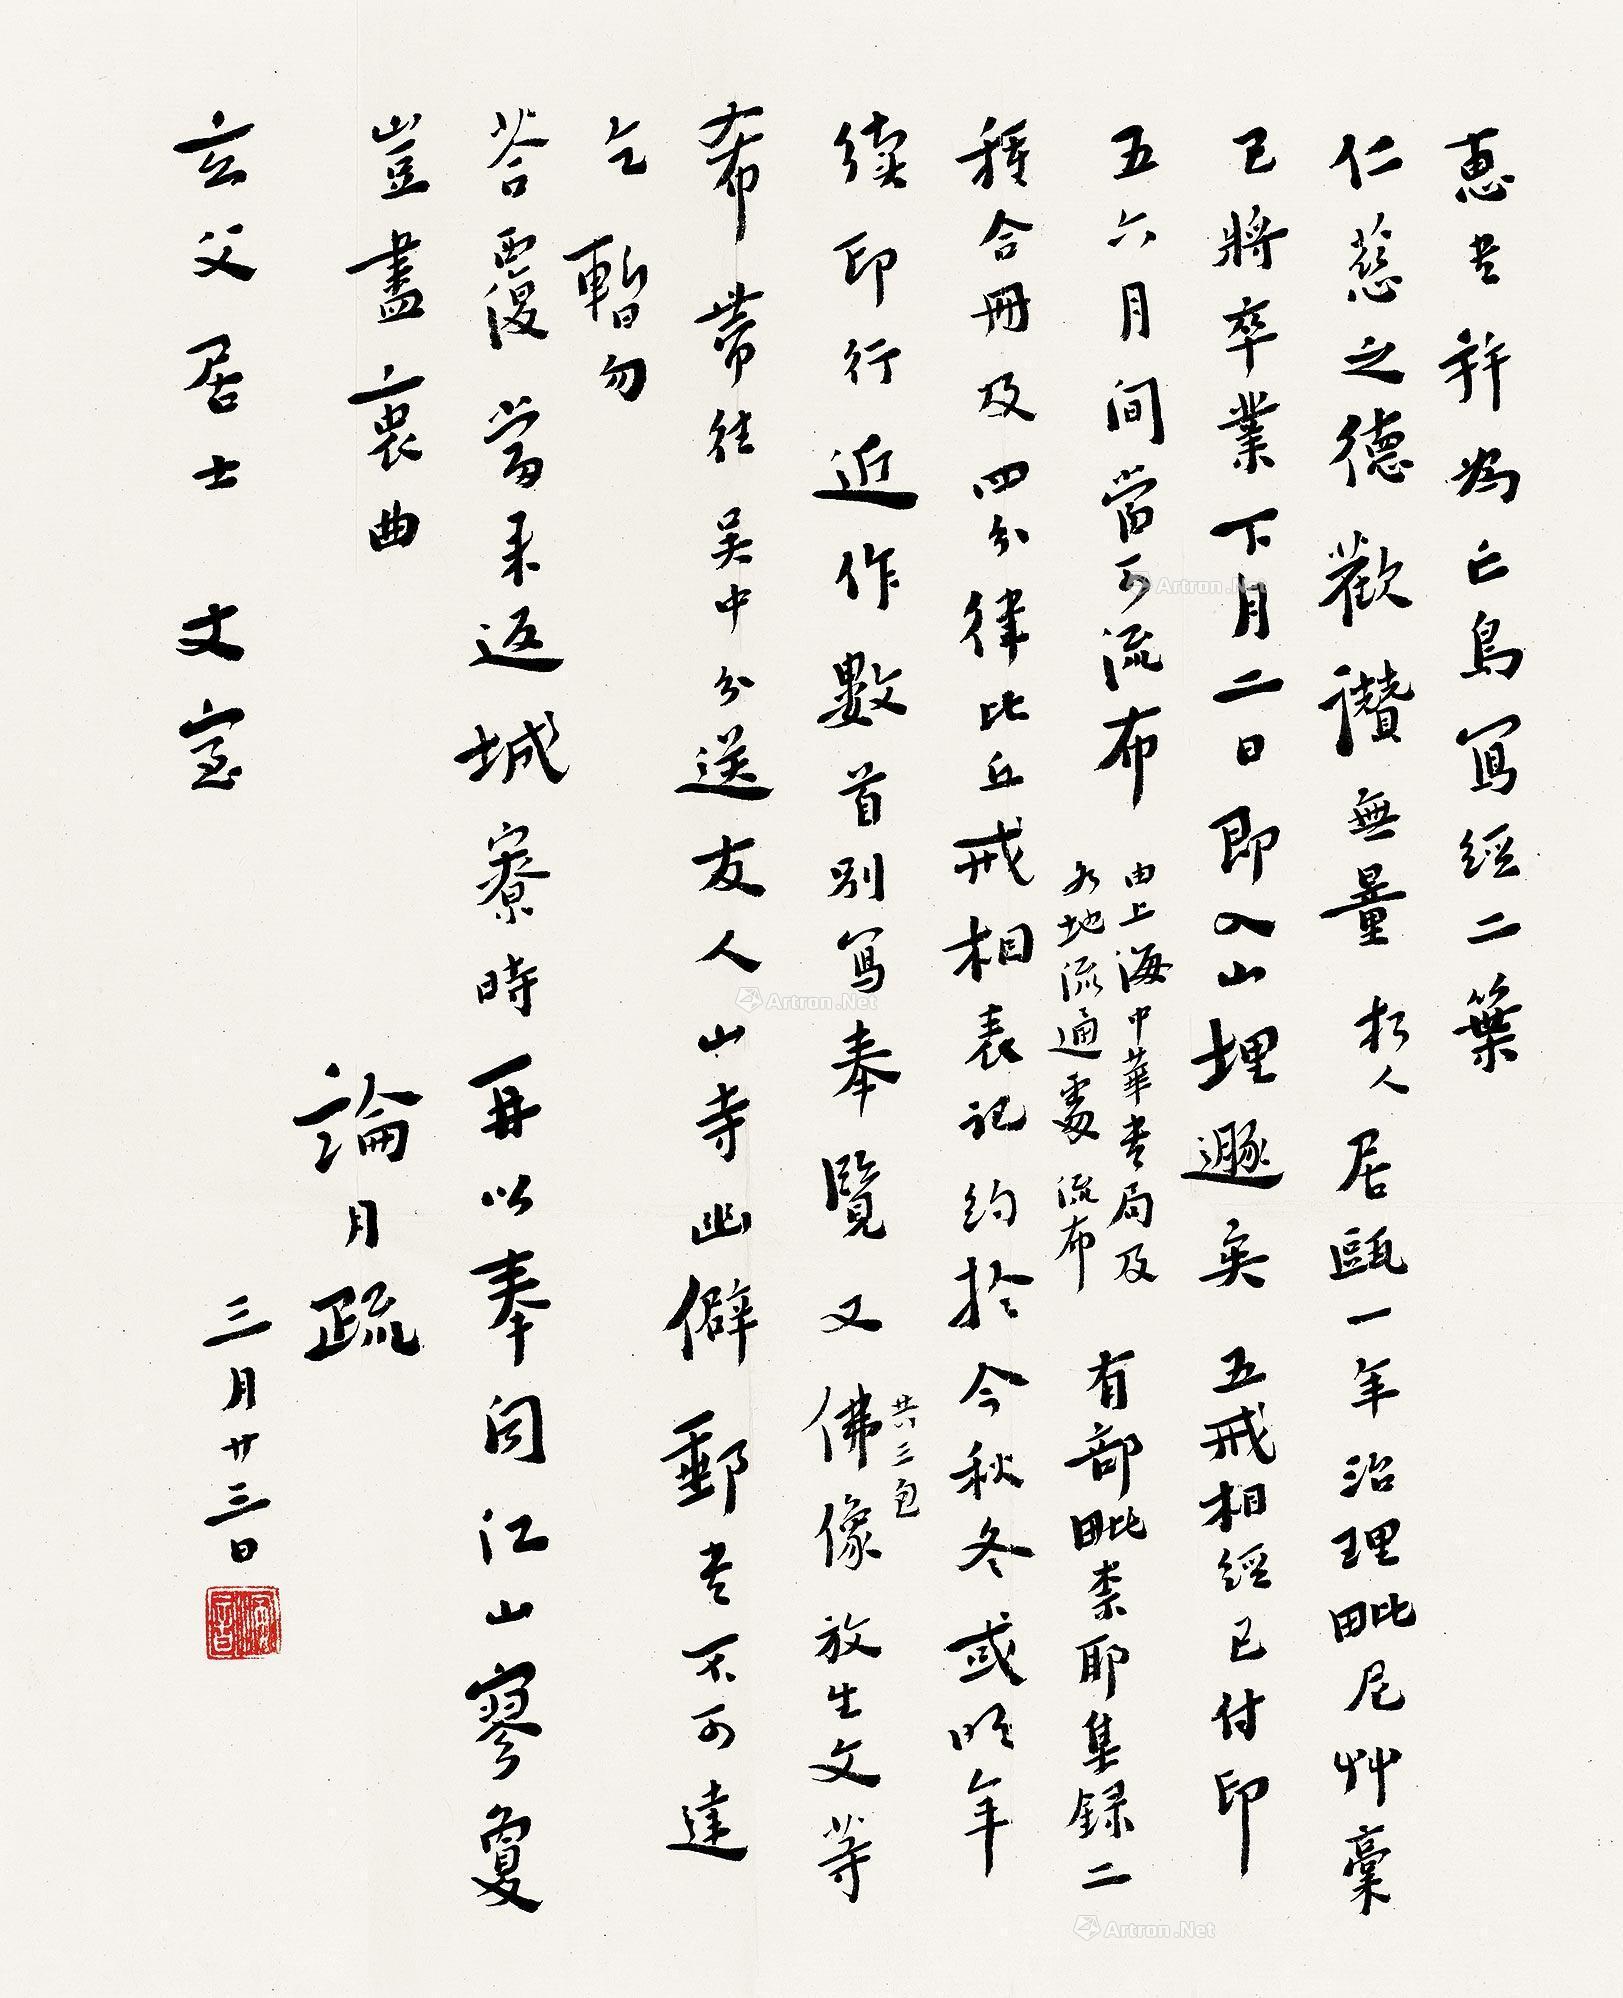 惠書并為亡鳥寫經二葉
仁慈之德歡讚無量 朽人居甌一年治理毗尼艸藁
已將卒業下月二日即入山埋遯矣 五戒相經已付印
五六月間當可流布 由上海中華書局及
各地流通處流布 有部毗柰耶集録二
種合冊及四分律比丘戒相表記約於今秋冬或明年
續印行近作數首別寫奉覽又佛像放生文等
共三包
希帶往吴中分送友人山寺幽僻郵書不可達
乞暫勿
荅覆當來返城寮時再以奉聞江山寥敻
豈盡衷曲
論月疏
玄父居士 丈室
三月廿三日
Artron.Net
Artron.Net
Artron.Net